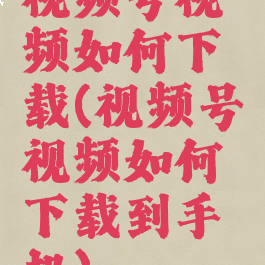 视频号视
频如何下
载(视频号
视频如何
下载到手
机)